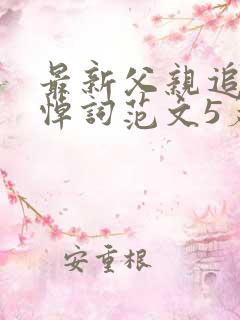 最新父親追
悼詞范文5
安重根